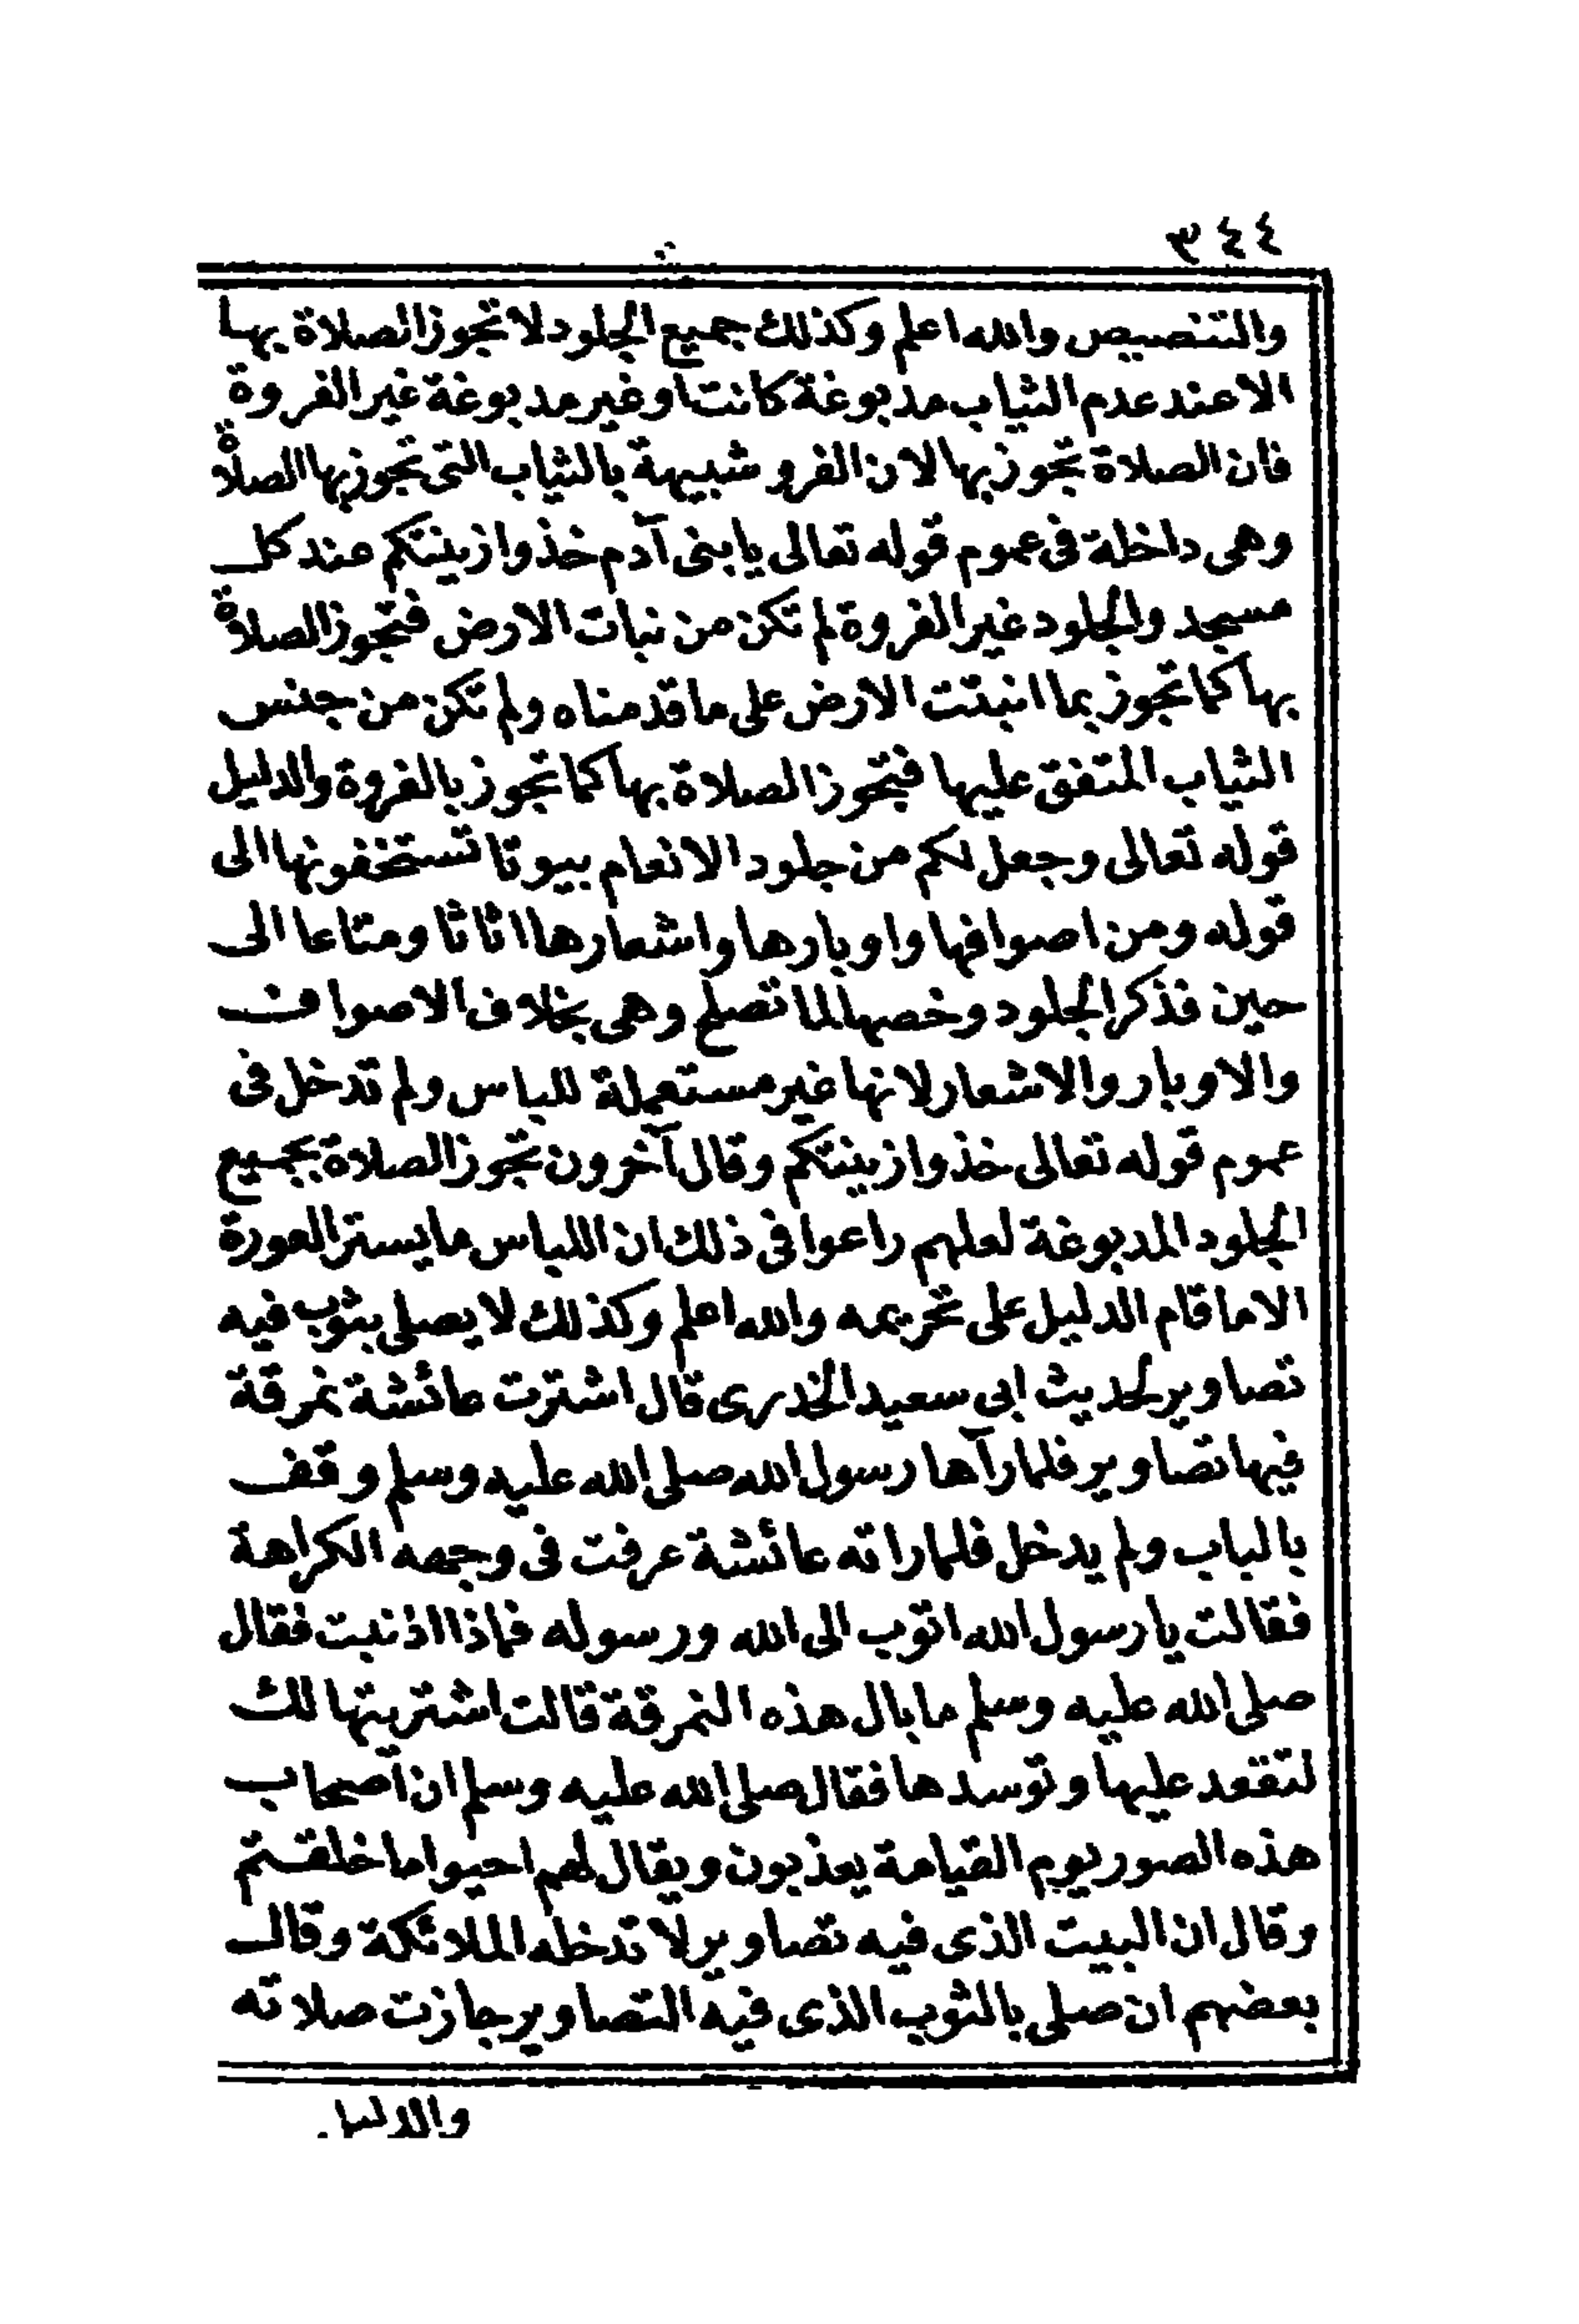 ٣٤٤
والتنصيص والله اعلم وكذلك جميع الجلود لا تجوز الصلاة بها
الا عند عدم الثياب مدبوغة كانت او غير مدبوغة غير الفروة
فان الصلاة تجوز بها لان الفرو شبيهة بالثياب التى تجوز بها الصلاة
وهى داخلة فى عموم قوله تعالى يا بنى آدم خذوا زينتكم عند كل
مسجد والجلود غير الفروة لم تكن من نبات الارض فتجوز الصلاة
بها كما تجوز بما انبتت الارض على ما قدمناه ولم تكن من جنس
الثياب المتفق عليها فتجوز الصلاة بها كما تجوز بالفروة والدليل
قوله تعالى وجعل لكم من جلود الانعام بيوتا تستخفونها الى
قوله ومن اصوافها واوبارها واشعارها اثاثا ومتاعا الى
حين فذكر الجلود وخصها لما تصلح وهى بخلاف الاصواف
والاوبار والاشعار لانها غير مستعملة للباس ولم تدخل فى
عموم قوله تعالى خذوا زينتكم وقال آخرون تجوز الصلاة بجميع
الجلود المدبوغة لعلهم راعوا فى ذلك ان اللباس ما يستر العورة
الا ما قام الدليل على تحريمه والله اعلم وكذلك لا يصلى بثوب فيه
تصاوير لحديث ابى سعيد الخدرى قال اشترت عائشة نمرقة
فيها تصاوير فلما رآها رسول الله صلى الله عليه وسلم وقف
بالباب ولم يدخل فلما راته عائشة عرفت فى وجهه الكراهة
فقالت يا رسول الله اتوب الى الله ورسوله فماذا اذنبت فقال
صلى الله عليه وسلم ما بال هذه النمرقة قالت اشتريتها لك
لتقعد عليها وتوسدها فقال صلى الله عليه وسلم ان اصحاب
هذه الصور يوم القيامة يعذبون ويقال لهم احيوا ما خلقتم
وقال ان البيت الذى فيه تصاوير لا تدخله الملائكة وقال
بعضهم ان صلى بالثوب الذى فيه التصاوير جازت صلاته
والدليل